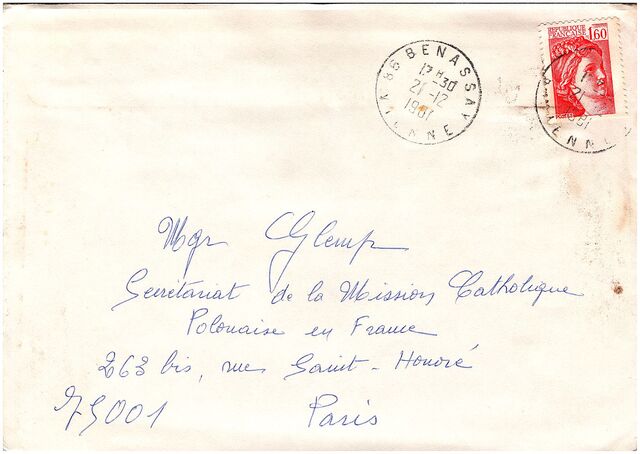 86 BENASSAY
17H30
21-12
1981
VIENNE
REPUBLIQUE
FRANCAISE
1,60
Mgr Glemp
Secrétariat de la Mission Catholique
Polonaise en France
263 bis, rue Saint-Honoré
75001 Paris